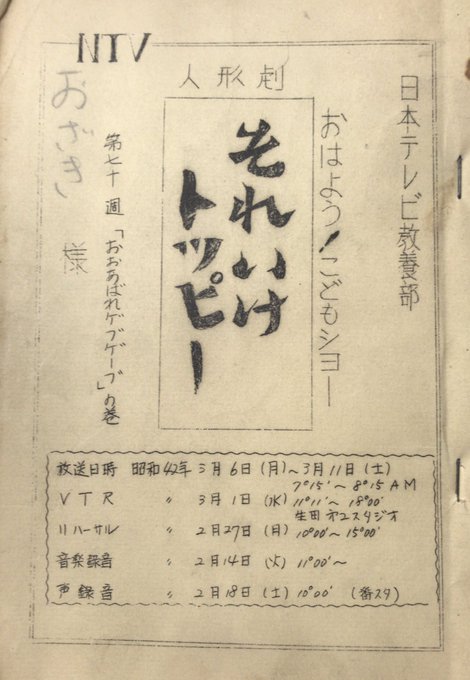 NTV
日本テレビ教養部
おはよう!こどもショー
人形劇
それいけ
トッピー
第七十週「おおあばれゲブゲーブ」の巻
おざき 様
放送日時 昭和42年 3月6日(月)~3月11日(土)
7°15'~8°15 AM
VTR 〃 3月1日(水) 11°11'~18°00'
生田オ2スタジオ
リハーサル 〃 2月27日(月) 10°00'~15°00'
音楽録音 〃 2月14日(火) 11°00'~
声録音 〃 2月18日(土) 10°00' (番スタ)